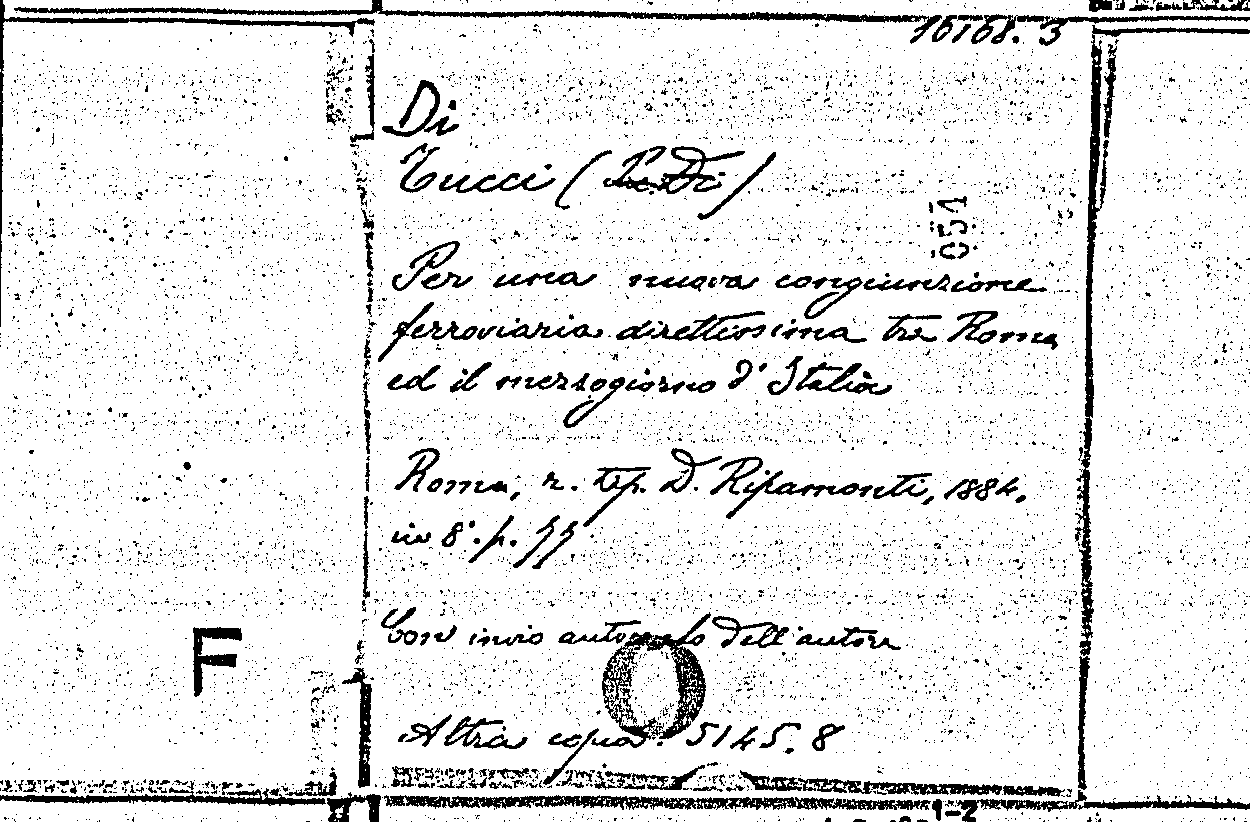 16168. 3
Di
Tucci (P. Di)
054
Per una nuova congiunzione
ferroviaria direttissima tra Roma
ed il mezzogiorno d'Italia
Roma, r. tip. D. Ripamonti, 1884,
in 8°. p. 55.
Con invio autografo dell'autore
F
Altra copia: 5145. 8
1-2